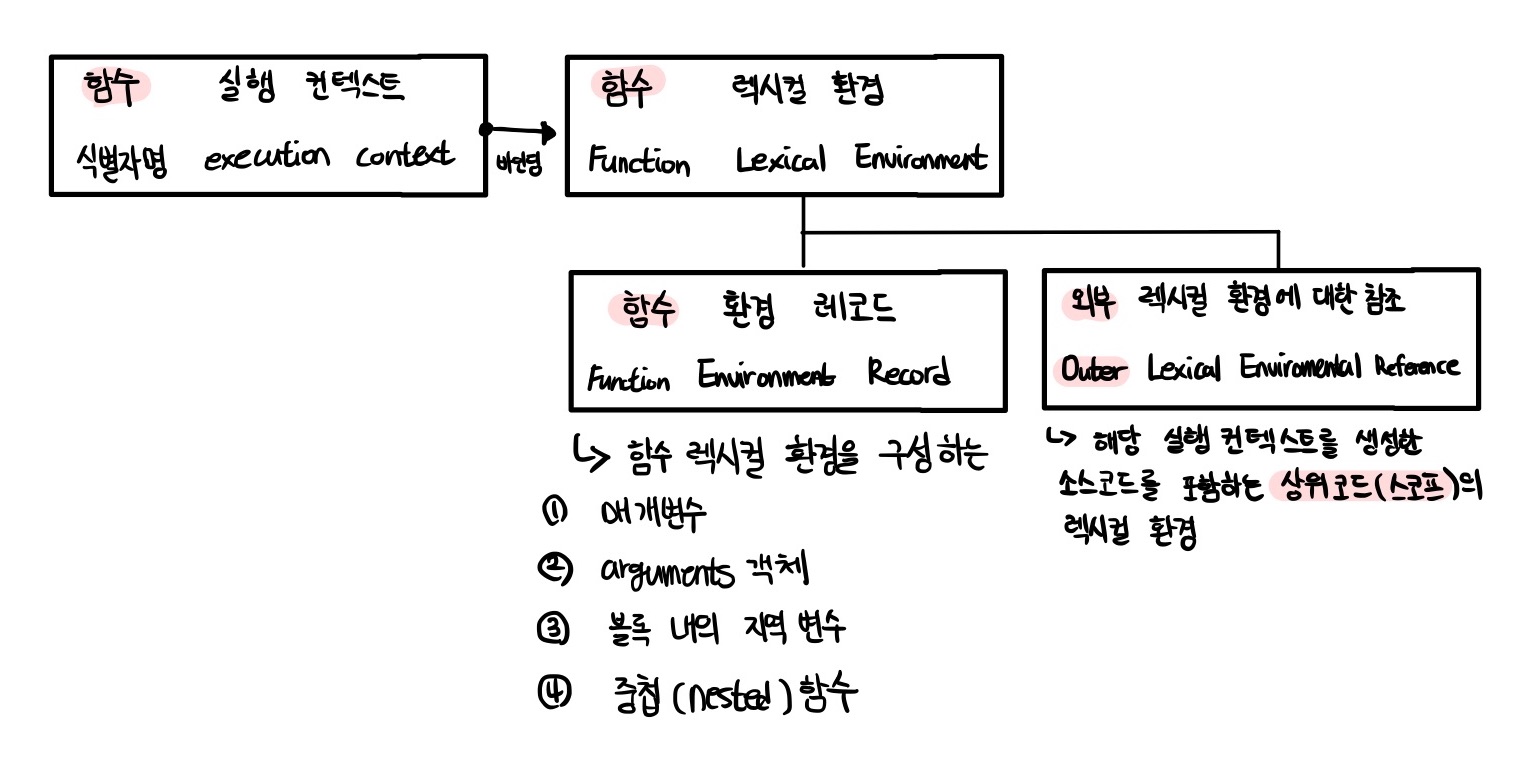 함수 실행 컨텍스트
식별자명 execution context
바인딩
함수 렉시컬 환경
Function Lexical Environment
함수 환경 레코드
Function Environment Record
↳ 함수 렉시컬 환경을 구성하는
① 매개변수
② arguments 객체
③ 블록 내의 지역 변수
④ 중첩 (nested) 함수
외부 렉시컬 환경에 대한 참조
Outer Lexical Enviromental Reference
↳ 해당 실행 컨텍스트를 생성한
소스코드를 포함하는 상위코드(스코프)의
렉시컬 환경